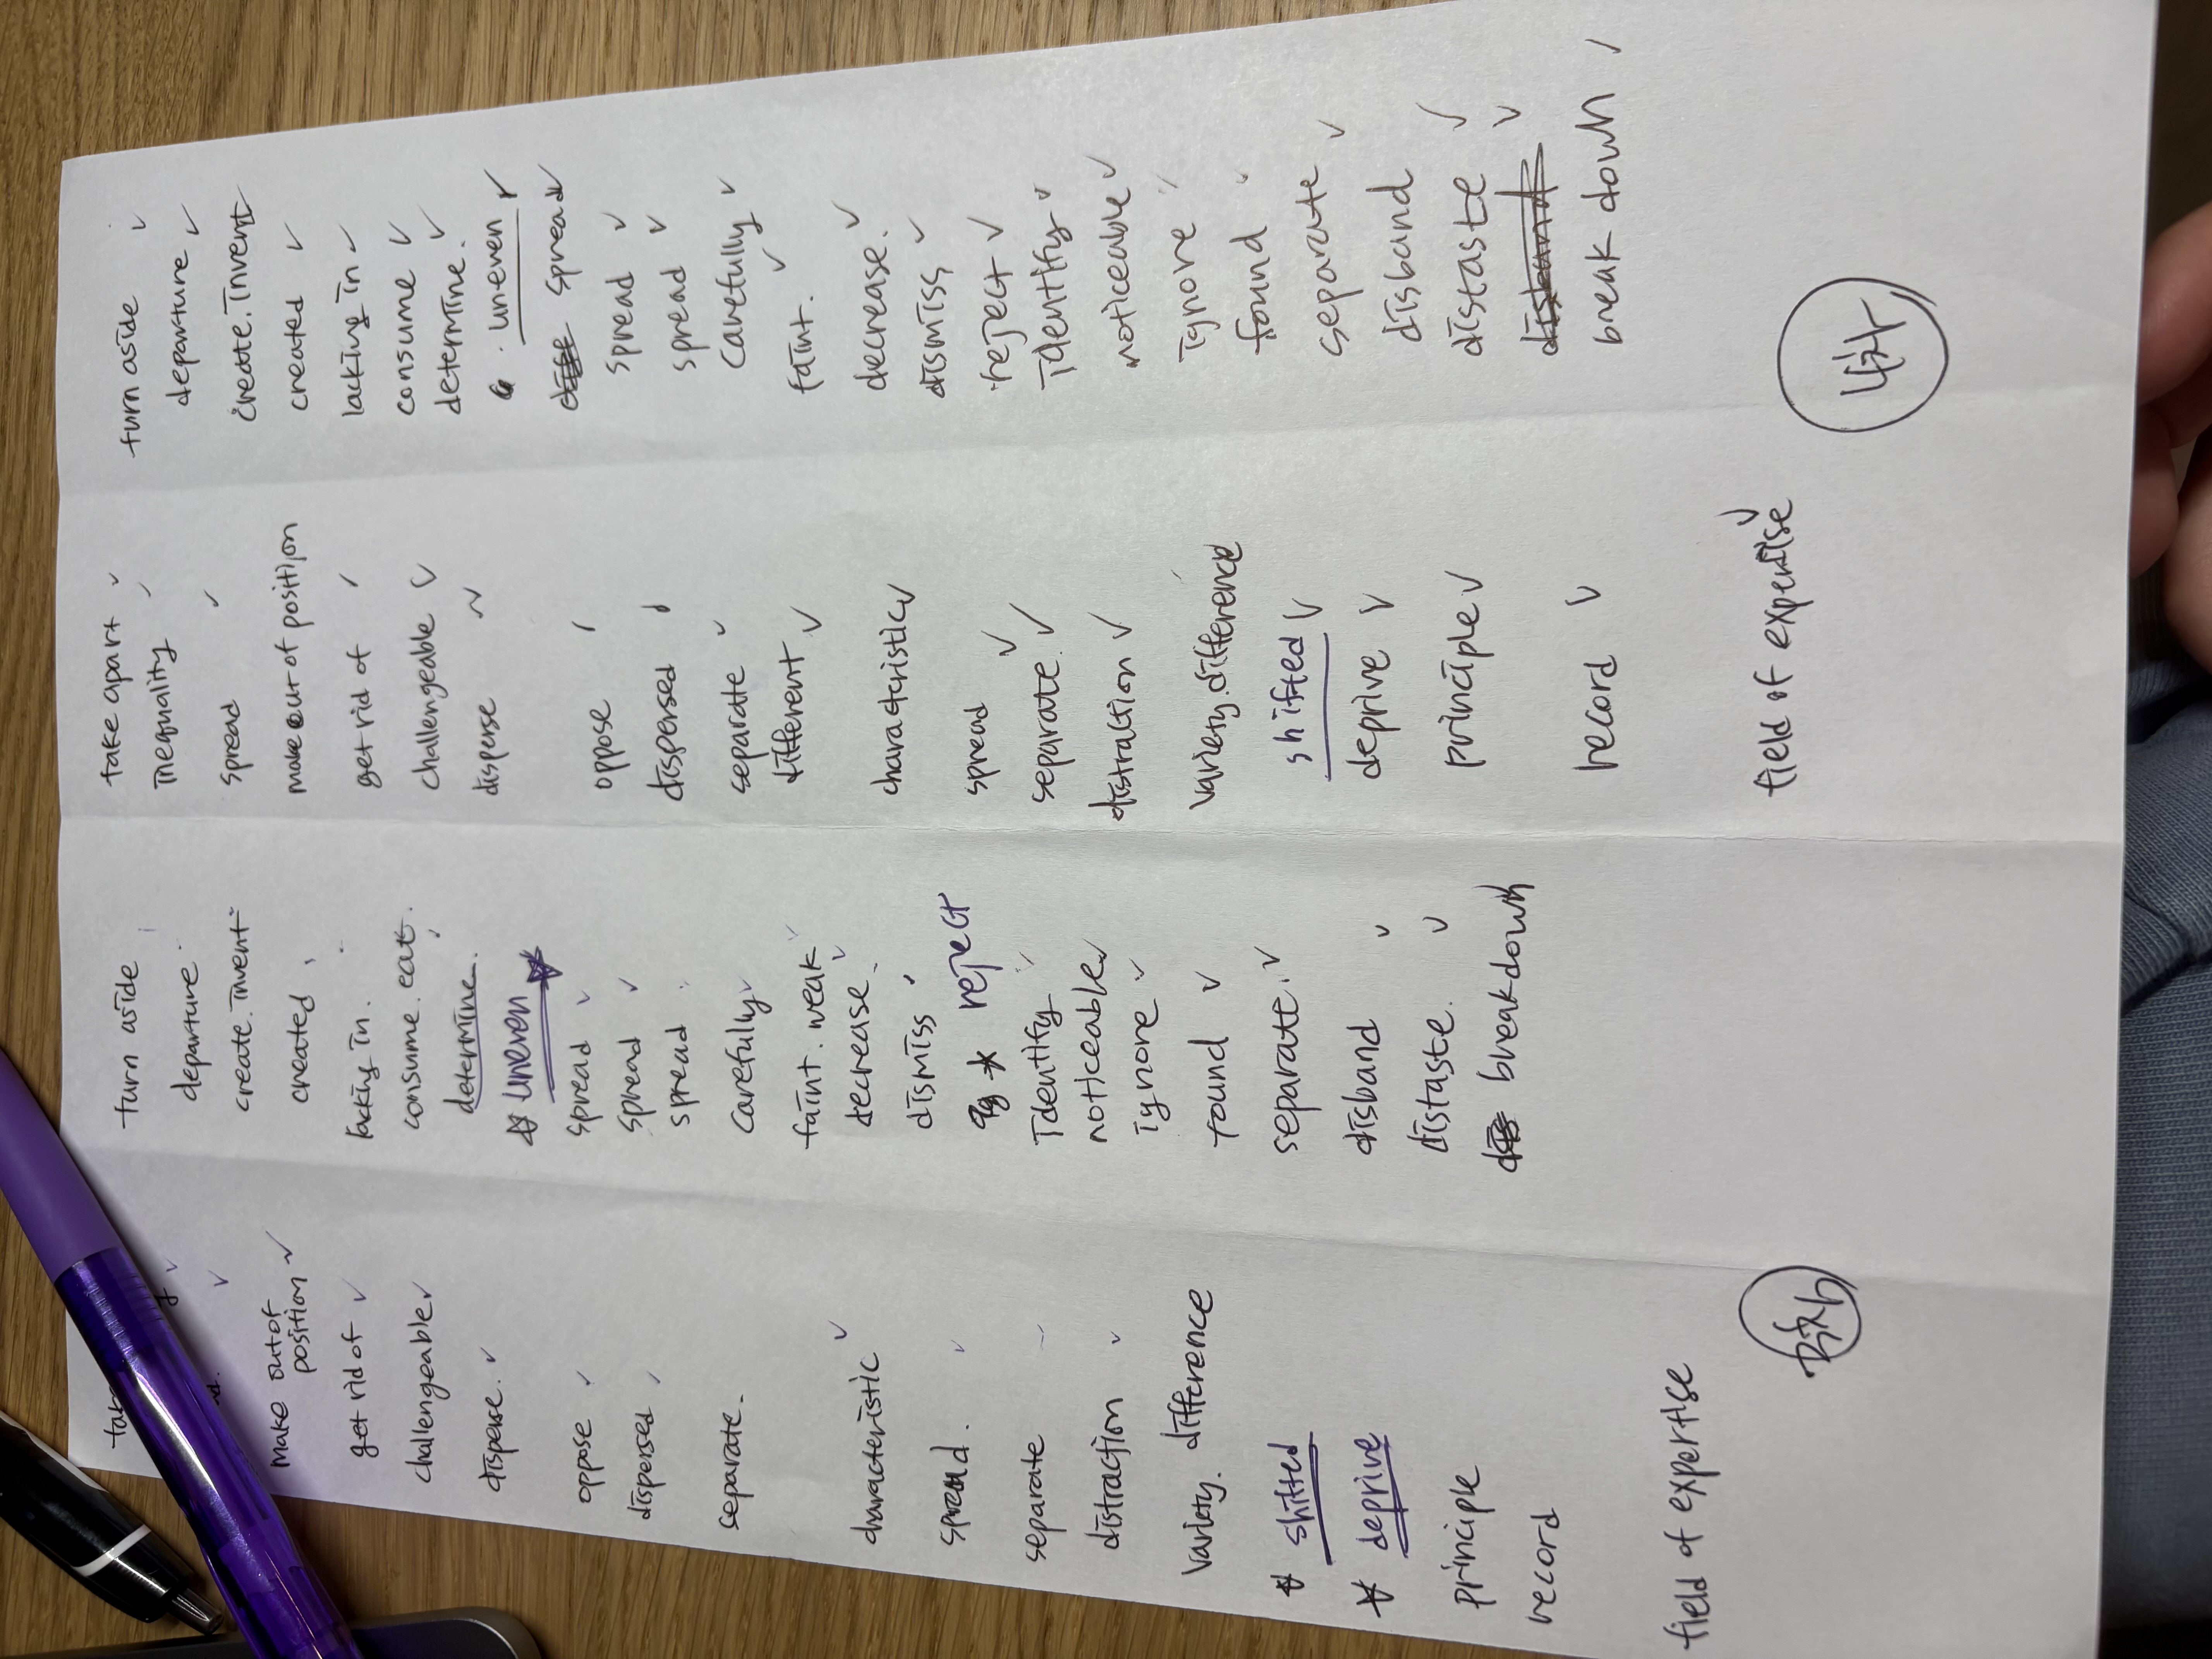 make out of
position
get rid of
challengeable
dispense.
oppose
dispersed
separate.
characteristic
spread.
separate
distraction
variety. difference
☆ shifted
☆ deprive
principle
record
field of expertise
turn aside
departure.
create. invent
created
lacking in.
consume. eat.
determine.
☆ uneven ☆
spread
spread
spread
carefully
faint. weak
decrease.
dismiss
★ reject
identify
noticeable
ignore
found
separate.
disband
distaste.
breakdown
take apart
inequality
spread
make out of position
get rid of
challengeable
dispense
oppose
dispersed
separate
different
characteristic
spread
separate.
distraction
variety. difference
shifted
deprive
principle
record
field of expertise
turn aside
departure
create. invent
created
lacking in
consume
determine.
uneven
spread
spread
spread
carefully
faint.
decrease.
dismiss
reject
identify
noticeable
ignore
found
separate
disband
distaste
disband
break down